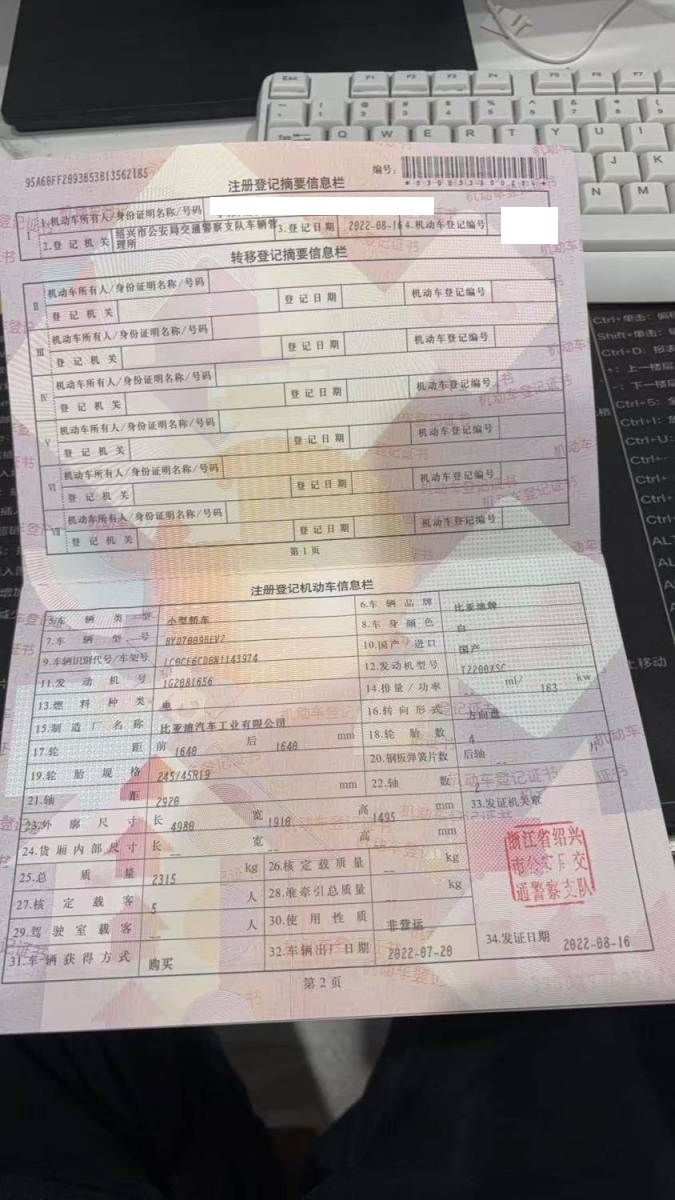 95A60FF2093B53B13562185
编号：
注册登记摘要信息栏
I
1.机动车所有人/身份证明名称/号码
2.登记机关 绍兴市公安局交通警察支队车辆管理所 3.登记日期 2022-08-16 4.机动车登记编号
转移登记摘要信息栏
II
机动车所有人/身份证明名称/号码
登记机关 登记日期 机动车登记编号
III
机动车所有人/身份证明名称/号码
登记机关 登记日期 机动车登记编号
IV
机动车所有人/身份证明名称/号码
登记机关 登记日期 机动车登记编号
V
机动车所有人/身份证明名称/号码
登记机关 登记日期 机动车登记编号
VI
机动车所有人/身份证明名称/号码
登记机关 登记日期 机动车登记编号
VII
机动车所有人/身份证明名称/号码
登记机关 登记日期 机动车登记编号
第1页
注册登记机动车信息栏
5.车辆类型 小型轿车 6.车辆品牌 比亚迪牌
7.车辆型号 8.车身颜色 白
9.车辆识别代号/车架号 10.国产/进口 国产
11.发动机号 1G2081656 12.发动机型号 TZ200XSC
13.燃料种类 电 14.排量/功率 ml/ 163 kw
15.制造厂名称 比亚迪汽车工业有限公司 16.转向形式 方向盘
17.轮距 前 1640 后 1640 mm 18.轮胎数 4
19.轮胎规格 245/45R19 20.钢板弹簧片数 后轴 -- 片
21.轴距 2920 mm 22.轴数 2
23.外廓尺寸 长 4980 宽 1910 高 1495 mm 33.发证机关章
24.货厢内部尺寸 长 -- 宽 -- 高 -- mm
25.总质量 2315 kg 26.核定载质量 -- kg
27.核定载客 5 人 28.准牵引总质量 -- kg
29.驾驶室载客 -- 人 30.使用性质 非营运
31.车辆获得方式 购买 32.车辆出厂日期 2022-07-20 34.发证日期 2022-08-16
浙江省绍兴
市公安局交
通警察支队
第2页
Esc F1 F2 F3 F4 F5 F6 F7
Q W E R T Y U I
J K
N M
Ctrl+单击：
Shift+单击：
Ctrl+D：